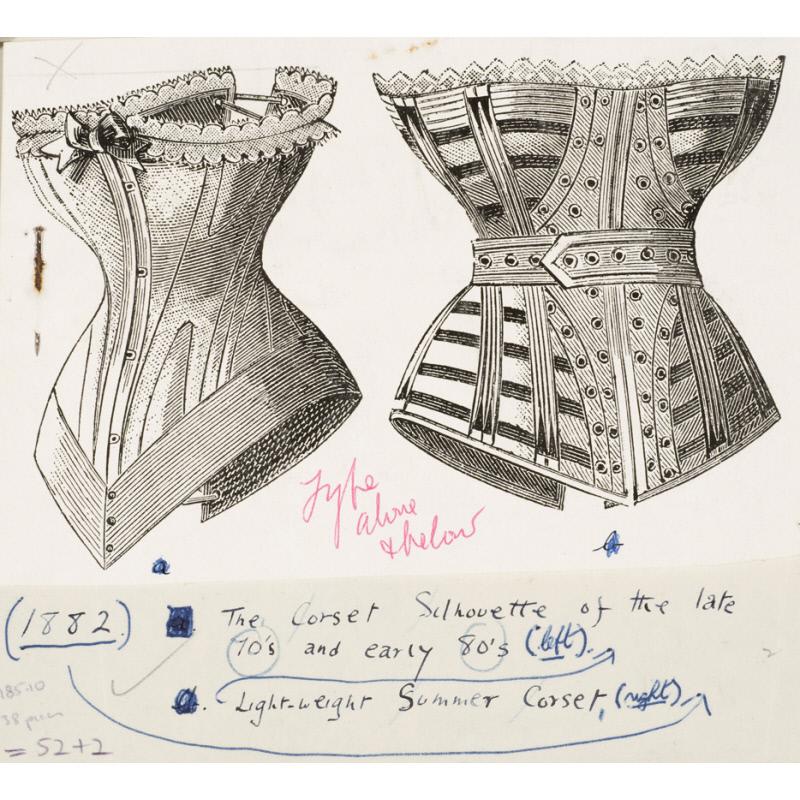 Type
above
& below
a
b
(1882) a. The Corset Silhouette of the late
70's and early 80's (left).
Light-weight Summer Corset, (right).
= 52+2